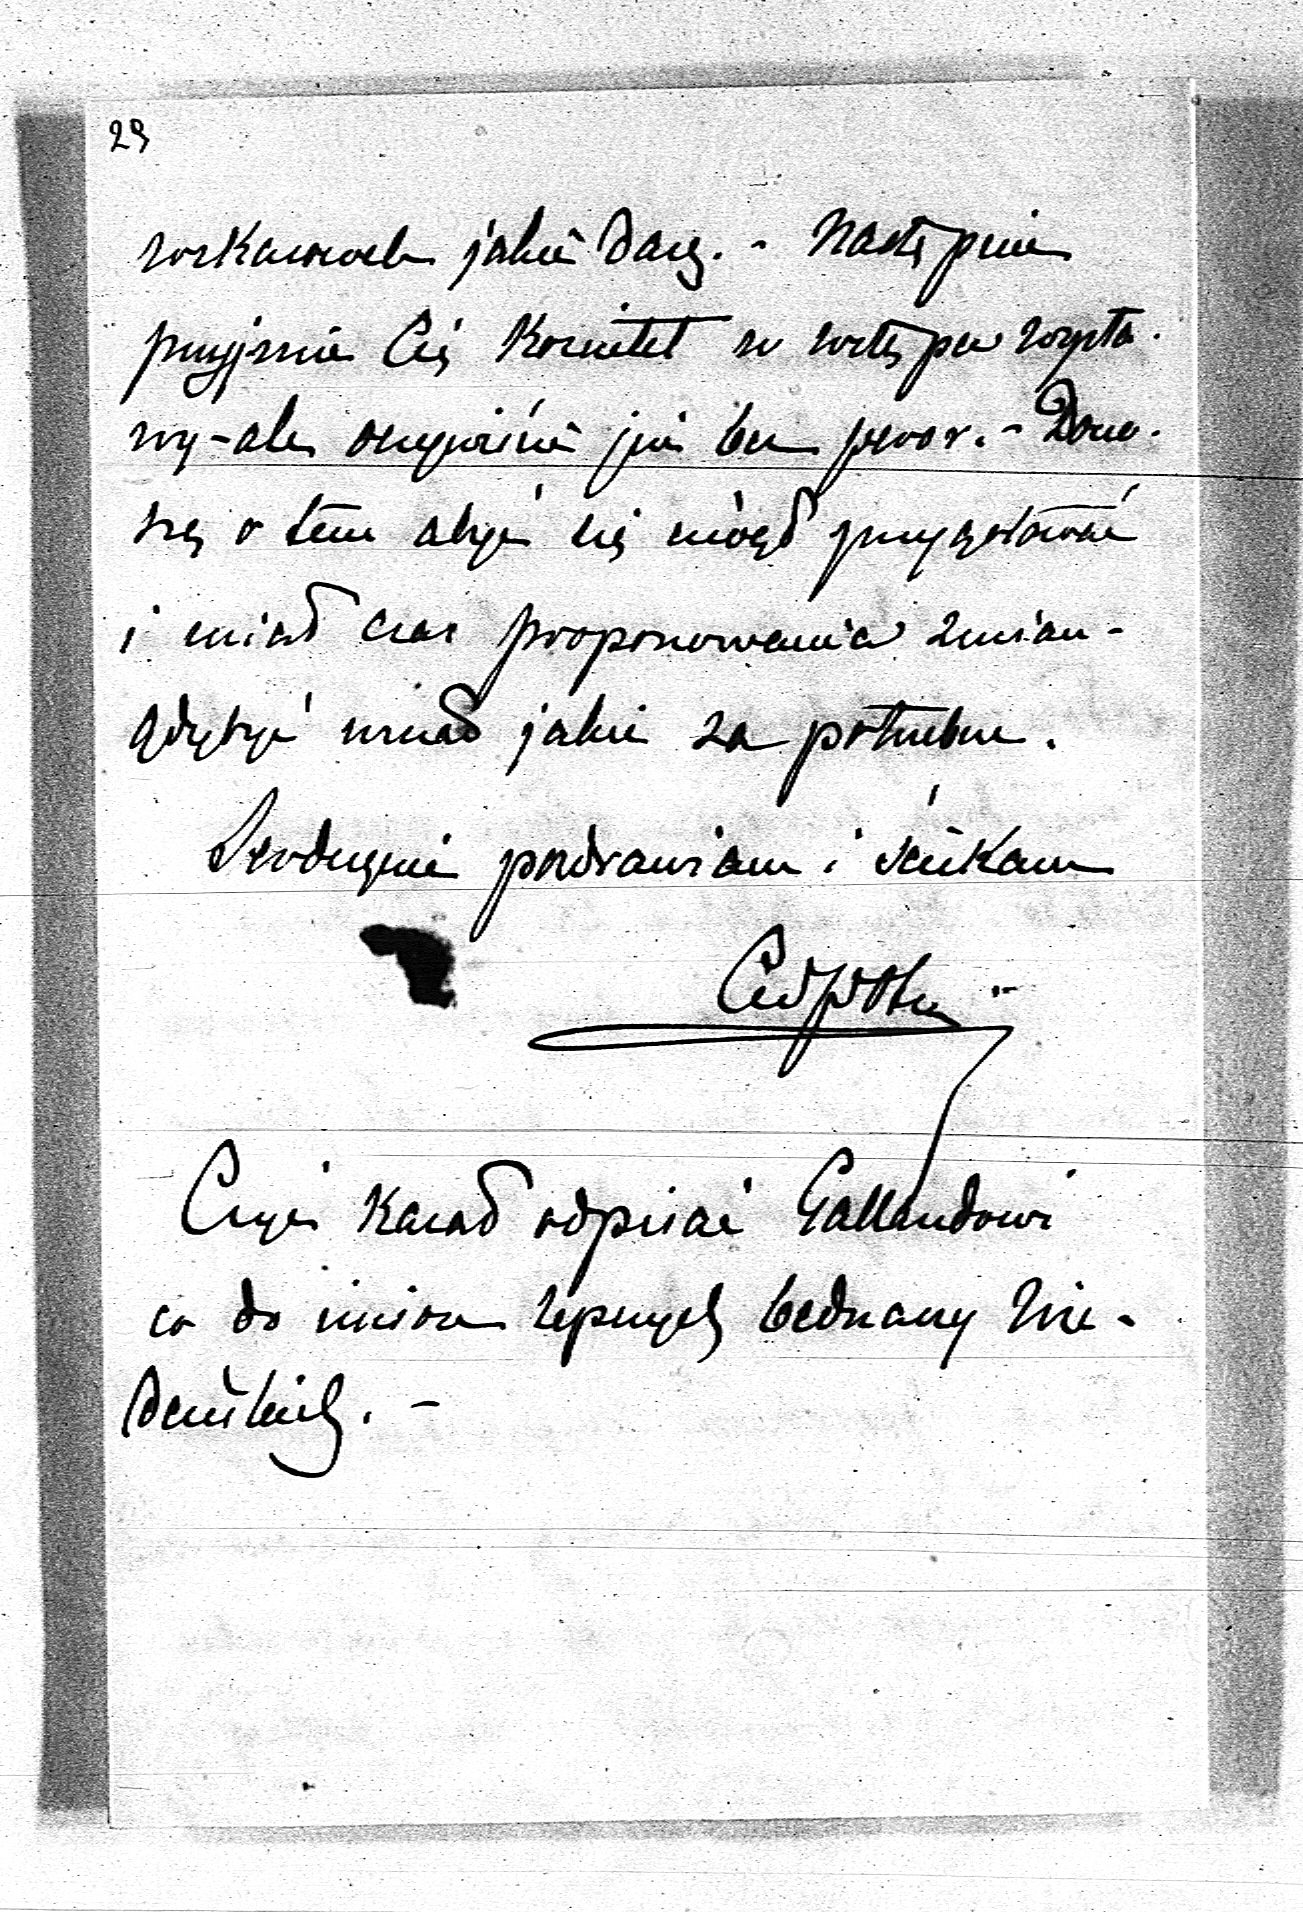 29
wskazówek jakie dasz. - Następnie
przyjmie Cię Komitet w wstępie wysta-
wy - ale oczywiście już bez prow. - Dono-
szę o tem abyś się mógł przygotować
i miał czas proponowania zmian -
gdybyś uznał jakie za potrzebne.
Serdecznie pozdrawiam i ściskam
Czyś kazał odpisać Gallandowi
co do imion lepszych bednarzy wie-
deńskich. -